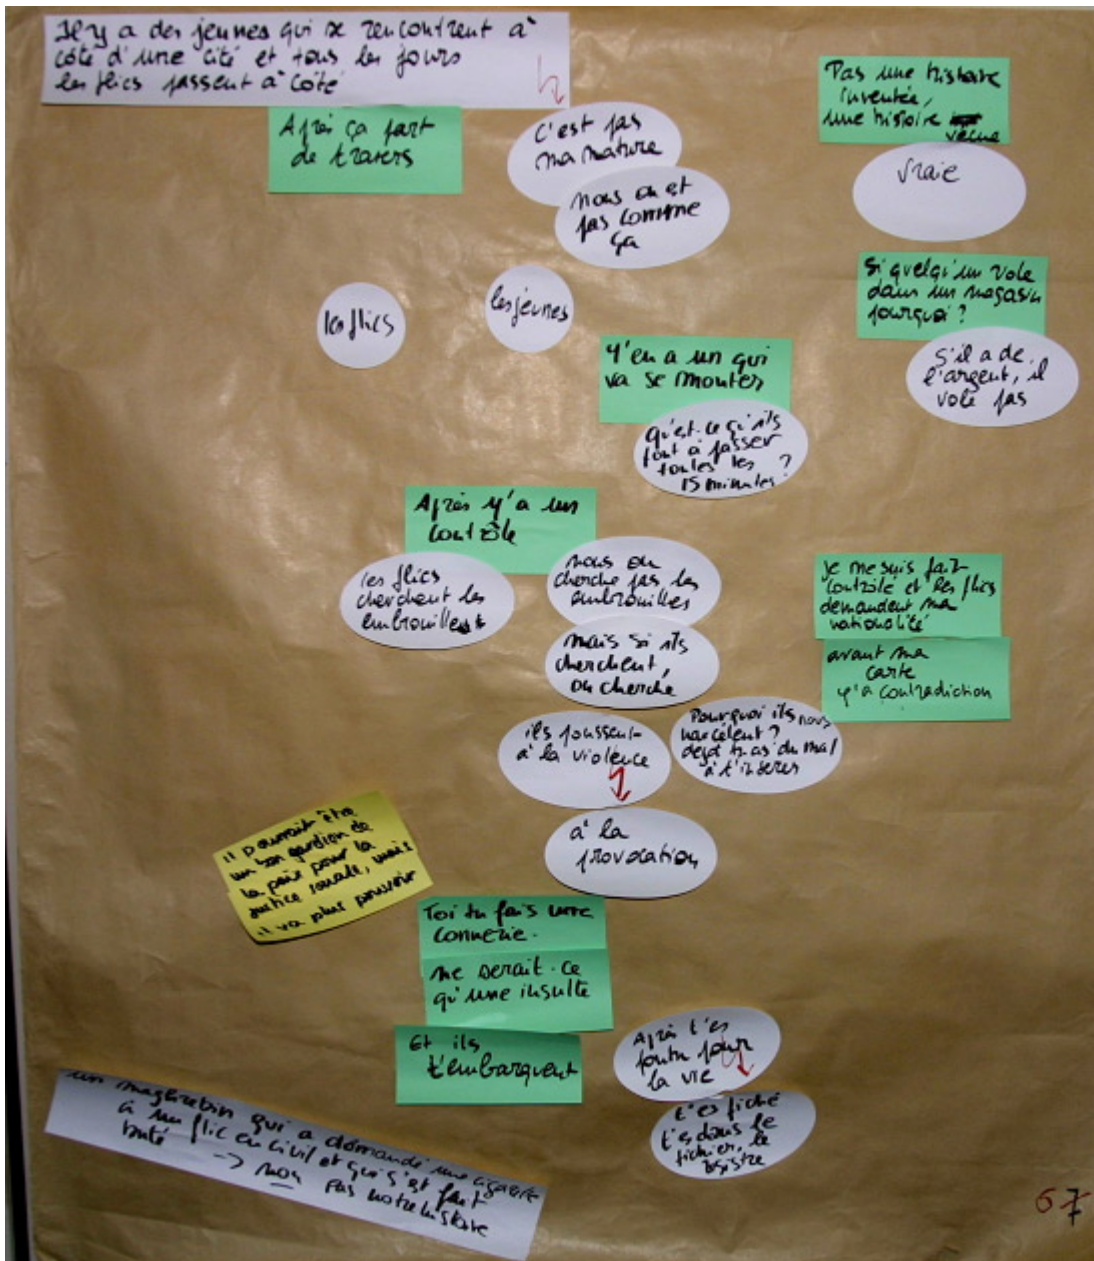 Il y a des jeunes qui se rencontrent à
côté d'une cité et tous les jours
les flics passent à côté
Après ça part
de travers
C'est pas
ma nature
nous on est
pas comme
ça
Pas une histoire
inventée,
une histoire
vécue
vraie
les flics
les jeunes
Si quelqu'un vole
dans un magasin
pourquoi ?
S'il a de
l'argent, il
vole pas
Y'en a un qui
va se monter
Qu'est-ce qu'ils
font à passer
toutes les
15 minutes ?
Après y'a un
contrôle
les flics
cherchent les
embrouilles
nous on
cherche pas les
embrouilles
mais si ils
cherchent,
on cherche
je me suis fait
contrôlé et les flics
demandent ma
nationalité
avant ma
carte
y'a contradiction
ils poussent
à la violence
Pourquoi ils nous
harcèlent ?
dejà tu as du mal
à t'insérer
à la
provocation
il pourrait être
un bon gardien de
la paix pour la
justice sociale, mais
il va plus pouvoir
Toi tu fais une
connerie.
ne serait-ce
qu'une insulte
Et ils
t'embarquent
Après t'es
foutu pour
la vie
t'es fiché
t'es dans le
fichier, le
un maghrebin qui a demandé une cigarette
à un flic en civil et qui s'est fait
buté → non pas notre histoire
6 7